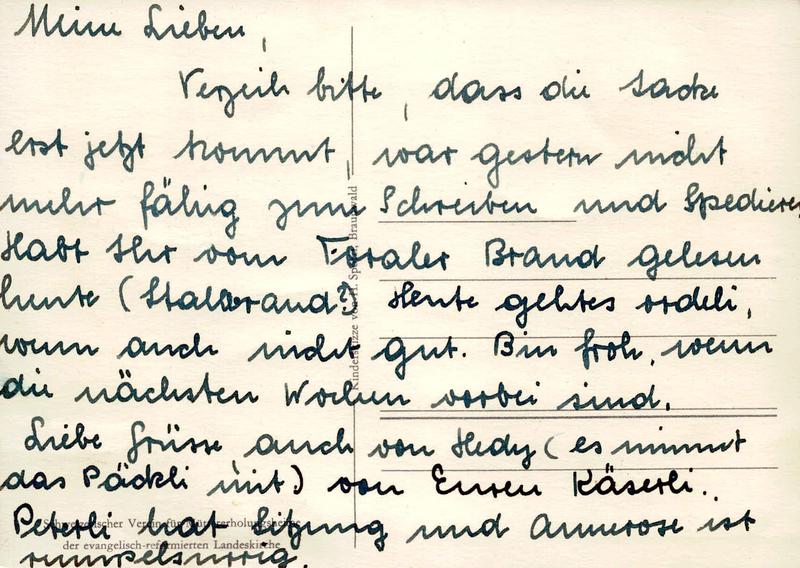 Meine Lieben,
Verzeih bitte, dass die Sache
erst jetzt kommt, war gestern nicht
mehr fähig zum Schreiben und Spedieren
Habt Ihr vom Brand gelesen
heute (Stallbrand?) Heute geht es ordeli,
wenn auch nicht gut. Bin froh, wenn
die nächsten Wochen vorbei sind.
Liebe Grüsse auch von Hedy (es nimmt
das Päckli mit) von Euren Käserli.
Peterli hat Sitzung und Annerose ist
rumpelsurrig.
Kinderskizze von H. Braunwald
Schweizerischer Verein für Müttererholungsheime
der evangelisch-reformierten Landeskirche